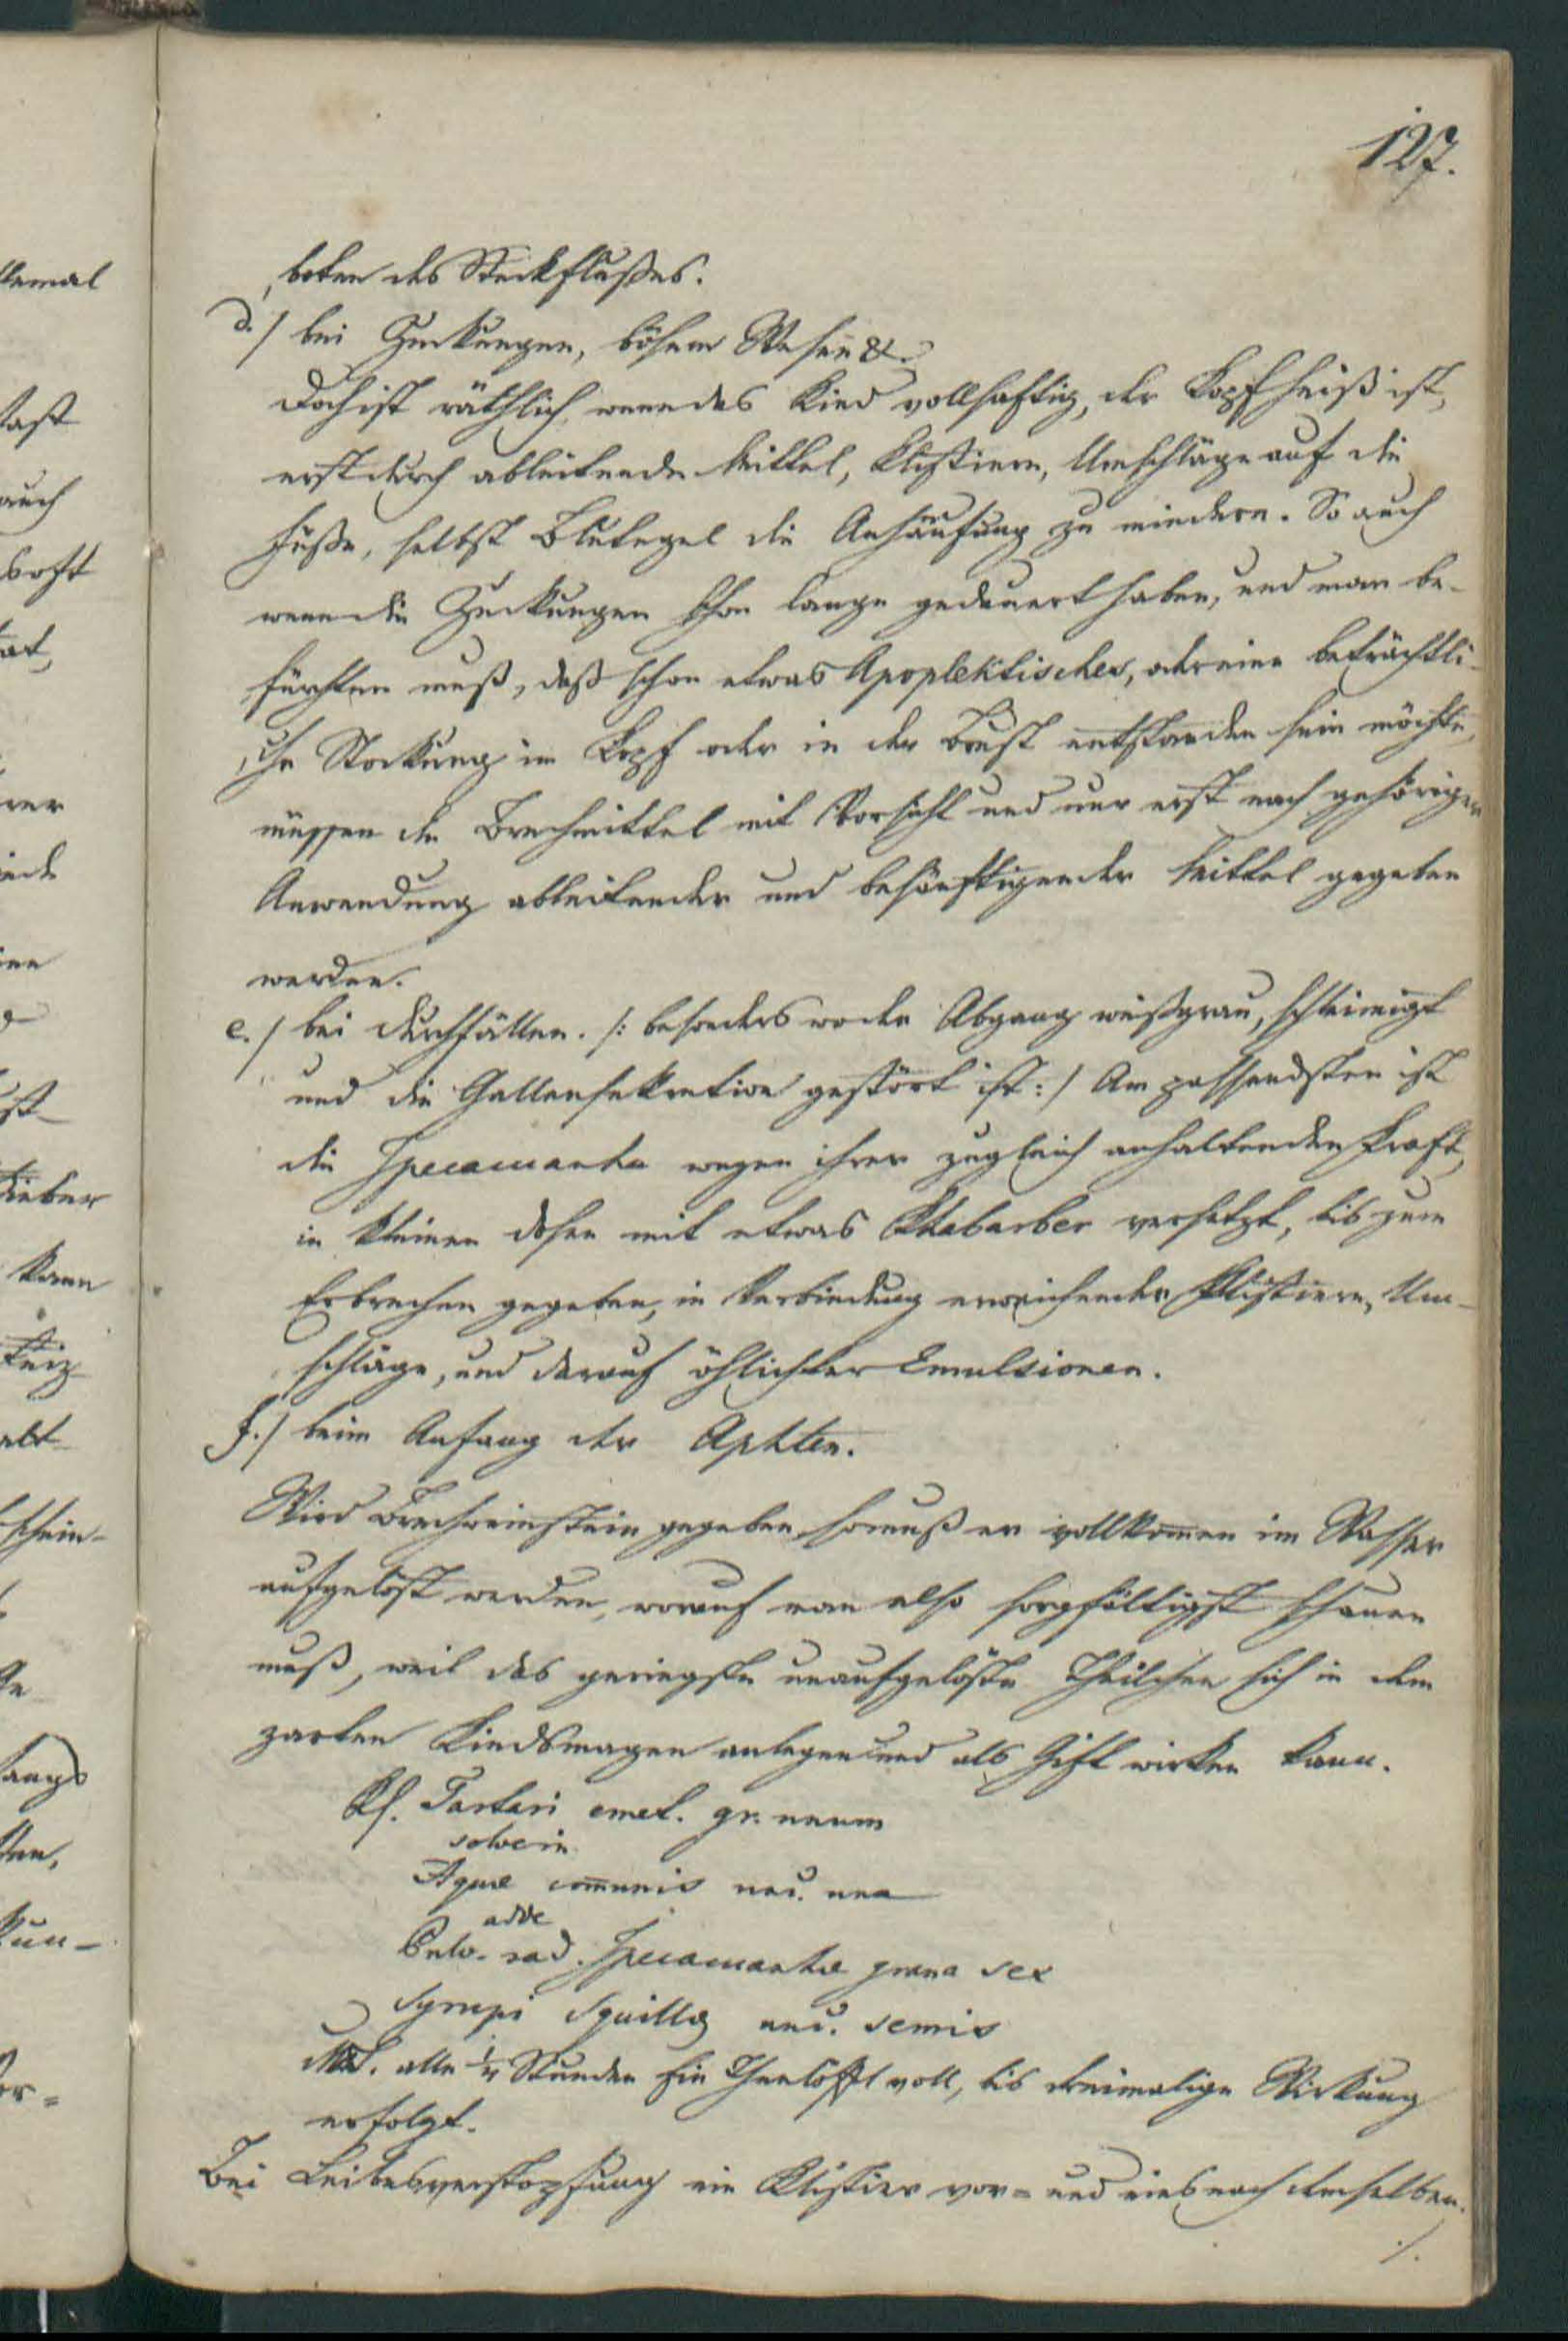 127.
boten des Steckflußes.
d./ bei Zuckungen, bösem Wesen &.
Doch ist räthlich, wenn das Kind vollsaftig, der Kopf heiß ist,
erst durch ableitende Mittel, Klistiere, Umschläge auf die
Füße, selbst Blutegel die Anhäufung zu mindern. So auch
wenn die Zuckungen schon lange gedauert haben, und man be-
fürchten muß, daß schon etwas Apoplektisches, oder eine beträchtli-
che Stockung im Kopf oder in der Brust entstanden sein möchte,
müssen die Brechmittel mit Vorsicht und nur erst nach gehöriger
Anwendung ableitender und besänftigender Mittel gegeben
werden.
e./ bei Durchfällen. /: besonders wo der Abgang weißgrau, schleimigt
und die Gallensekretion gestört ist :/ Am passendsten ist
die Ipecacuanha wegen ihrer zugleich anhaltenden Kraft,
in kleinen Dosen mit etwas Rhabarber versetzt, bis zum
Erbrechen gegeben, in Verbindung erweichender Klistiere, Um-
schläge, und darauf öhlichter Emulsionen.
f./ beim Anfang der Aphten.
Wird Brechweinstein gegeben, so muß er vollkom̅en im Wasser
aufgelöst werden, worauf man also sorgfältigst schauen
muß, weil das geringste unaufgelöste Theilchen sich in dem
zarten Kindsmagen anlegen und als Gift wirken kann.
Rp. Tartari emet. gr. unum
solve in
Aquæ com̅unis unc. una
adde
Pulv. rad. Ipecacuanhæ grana sex
Syrupi Squillæ unc. semis
alle ¼ Stunden Ein Theelöffel voll, bis dreimalige Wirkung
erfolgt.
Bei Leibesverstopfung ein Klistier vor- und eines nach demselben.
./.
lemal
auch
rer
kann